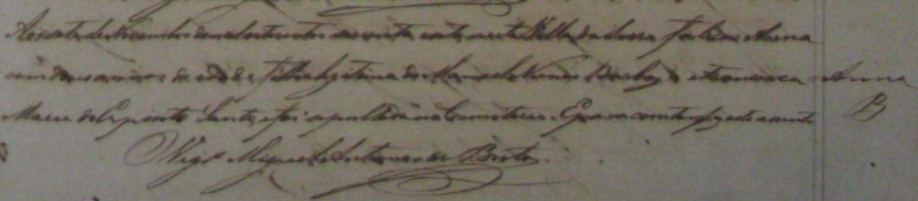 Aos sete de Novembro de mil oito centos sessenta e sete nesta Villa da Serra faleceo Anna
com dous annos de idade filha legitima de Manoel Nunes e Francisca Anna
Maria do Espirito Santo, e foi sepultada no Cemiterio. E para constar fiz este assento
Vigr.º Miguel Antunes de Brito.